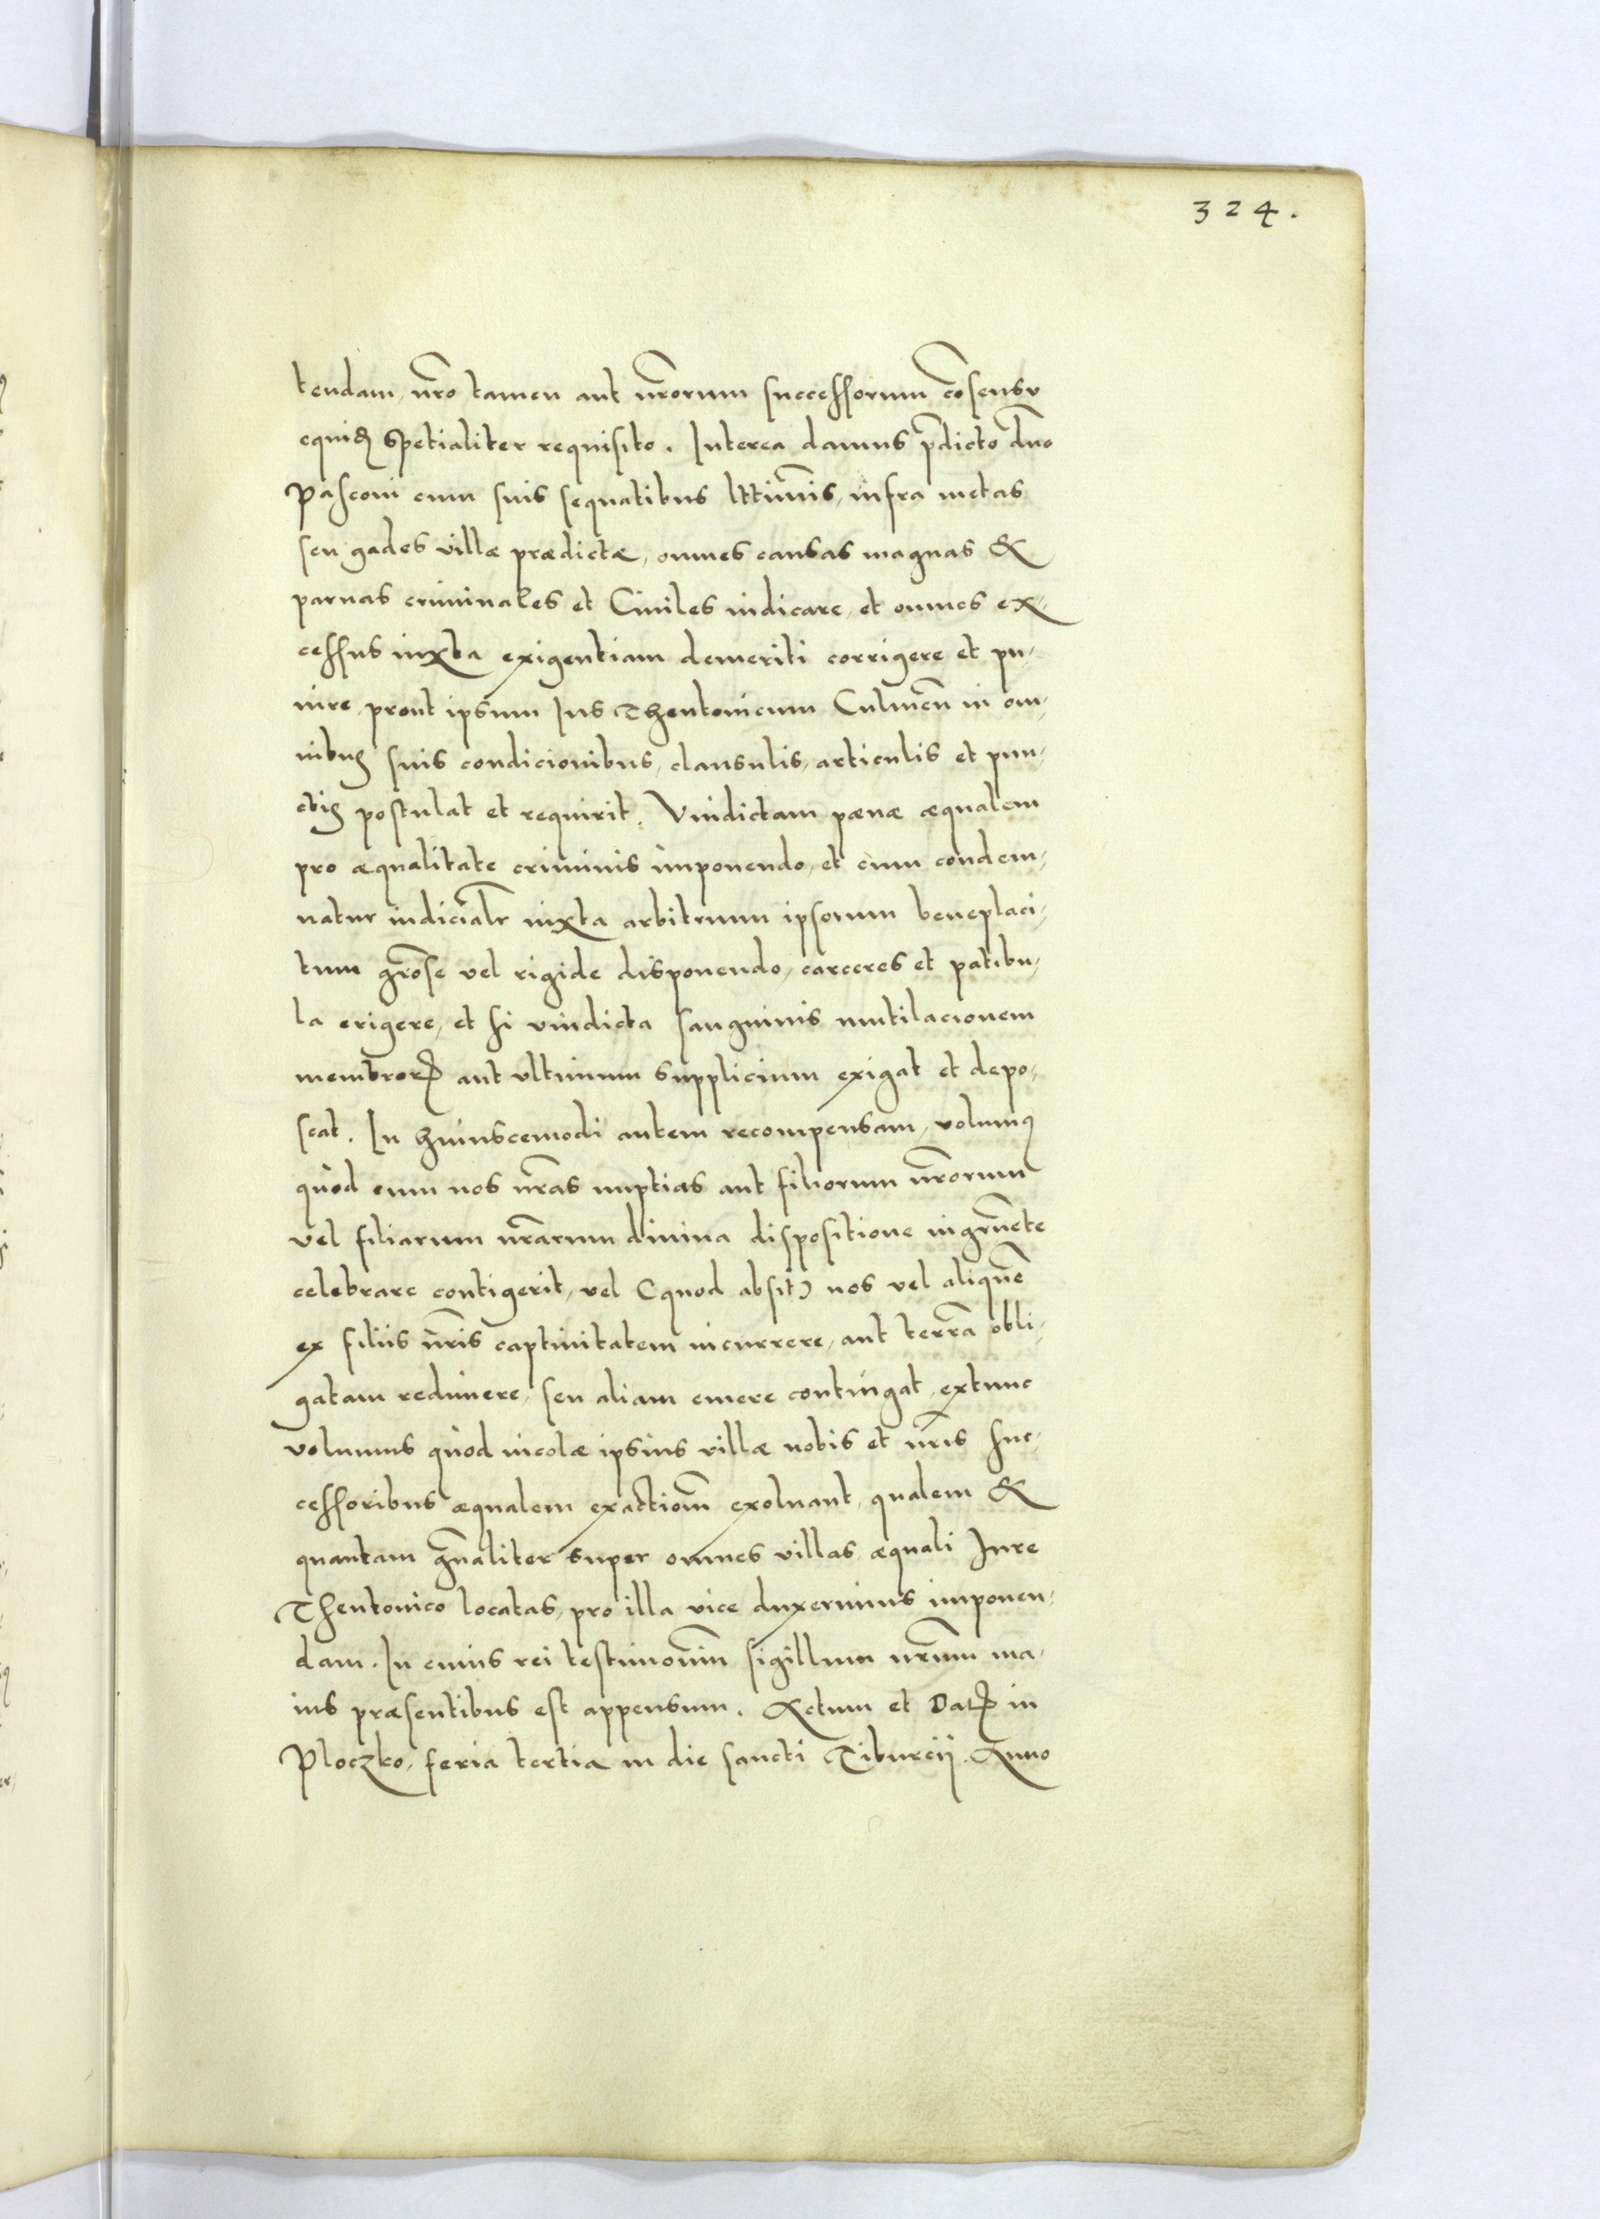 324.
tendam, nr̃o tamen aut nr̃orum successorum cõsensu
equidẽ spetialiter requisito. Interea damus p̃dicto dño
Pasconi cum suis sequatibus lttimis, infra metas
seu gades villæ prædictæ, omnes causas magnas &
paruas criminales et Ciuiles iudicare, et omnes ex-
cessus iuxta exigentiam demeriti corrigere et pu-
nire prout ipsum Ius Theutonicum Culmeñ in om-
nibus suis condicionibus, clausulis, articulis et pun-
ctis postulat et requirit. Vindictam pænæ æqualem
pro æqualitate criminis imponendo, et cum condem-
natur iudicialr̃ iuxta arbitrium ipsorum beneplaci-
tum gr̃ose vel rigide disponendo, carceres et patibu-
la erigere, et si vindicta sanguinis mutilacionem
membrorꝝ aut vltimum supplicium exigat et depo-
scat. In huiuscemodi autem recompensam, volumꝰ
quòd cum nos nr̃as nuptias aut filiorum nr̃orum
vel filiarum nr̃arum diuina dispositione ingruẽte
celebrare contigerit, vel (quod absit) nos vel aliquẽ
ex filiis nr̃is captiuitatem incurrere, aut terrã obli-
gatam redimere, seu aliam emere contingat, extunc
volumus quòd incolæ ipsius villæ nobis et nr̃is suc-
cessoribus æqualem exactiom̃ exoluant, qualem &
quantam gñaliter super omnes villas æquali Iure
Theutonico locatas, pro illa vice duxerimus imponen-
dam. In cuius rei testimoniũ sigillum nr̃um ma-
ius præsentibus est appensum. Actum et Datꝝ in
Ploczko, feria tertia in die sancti Tiburcij. Anno